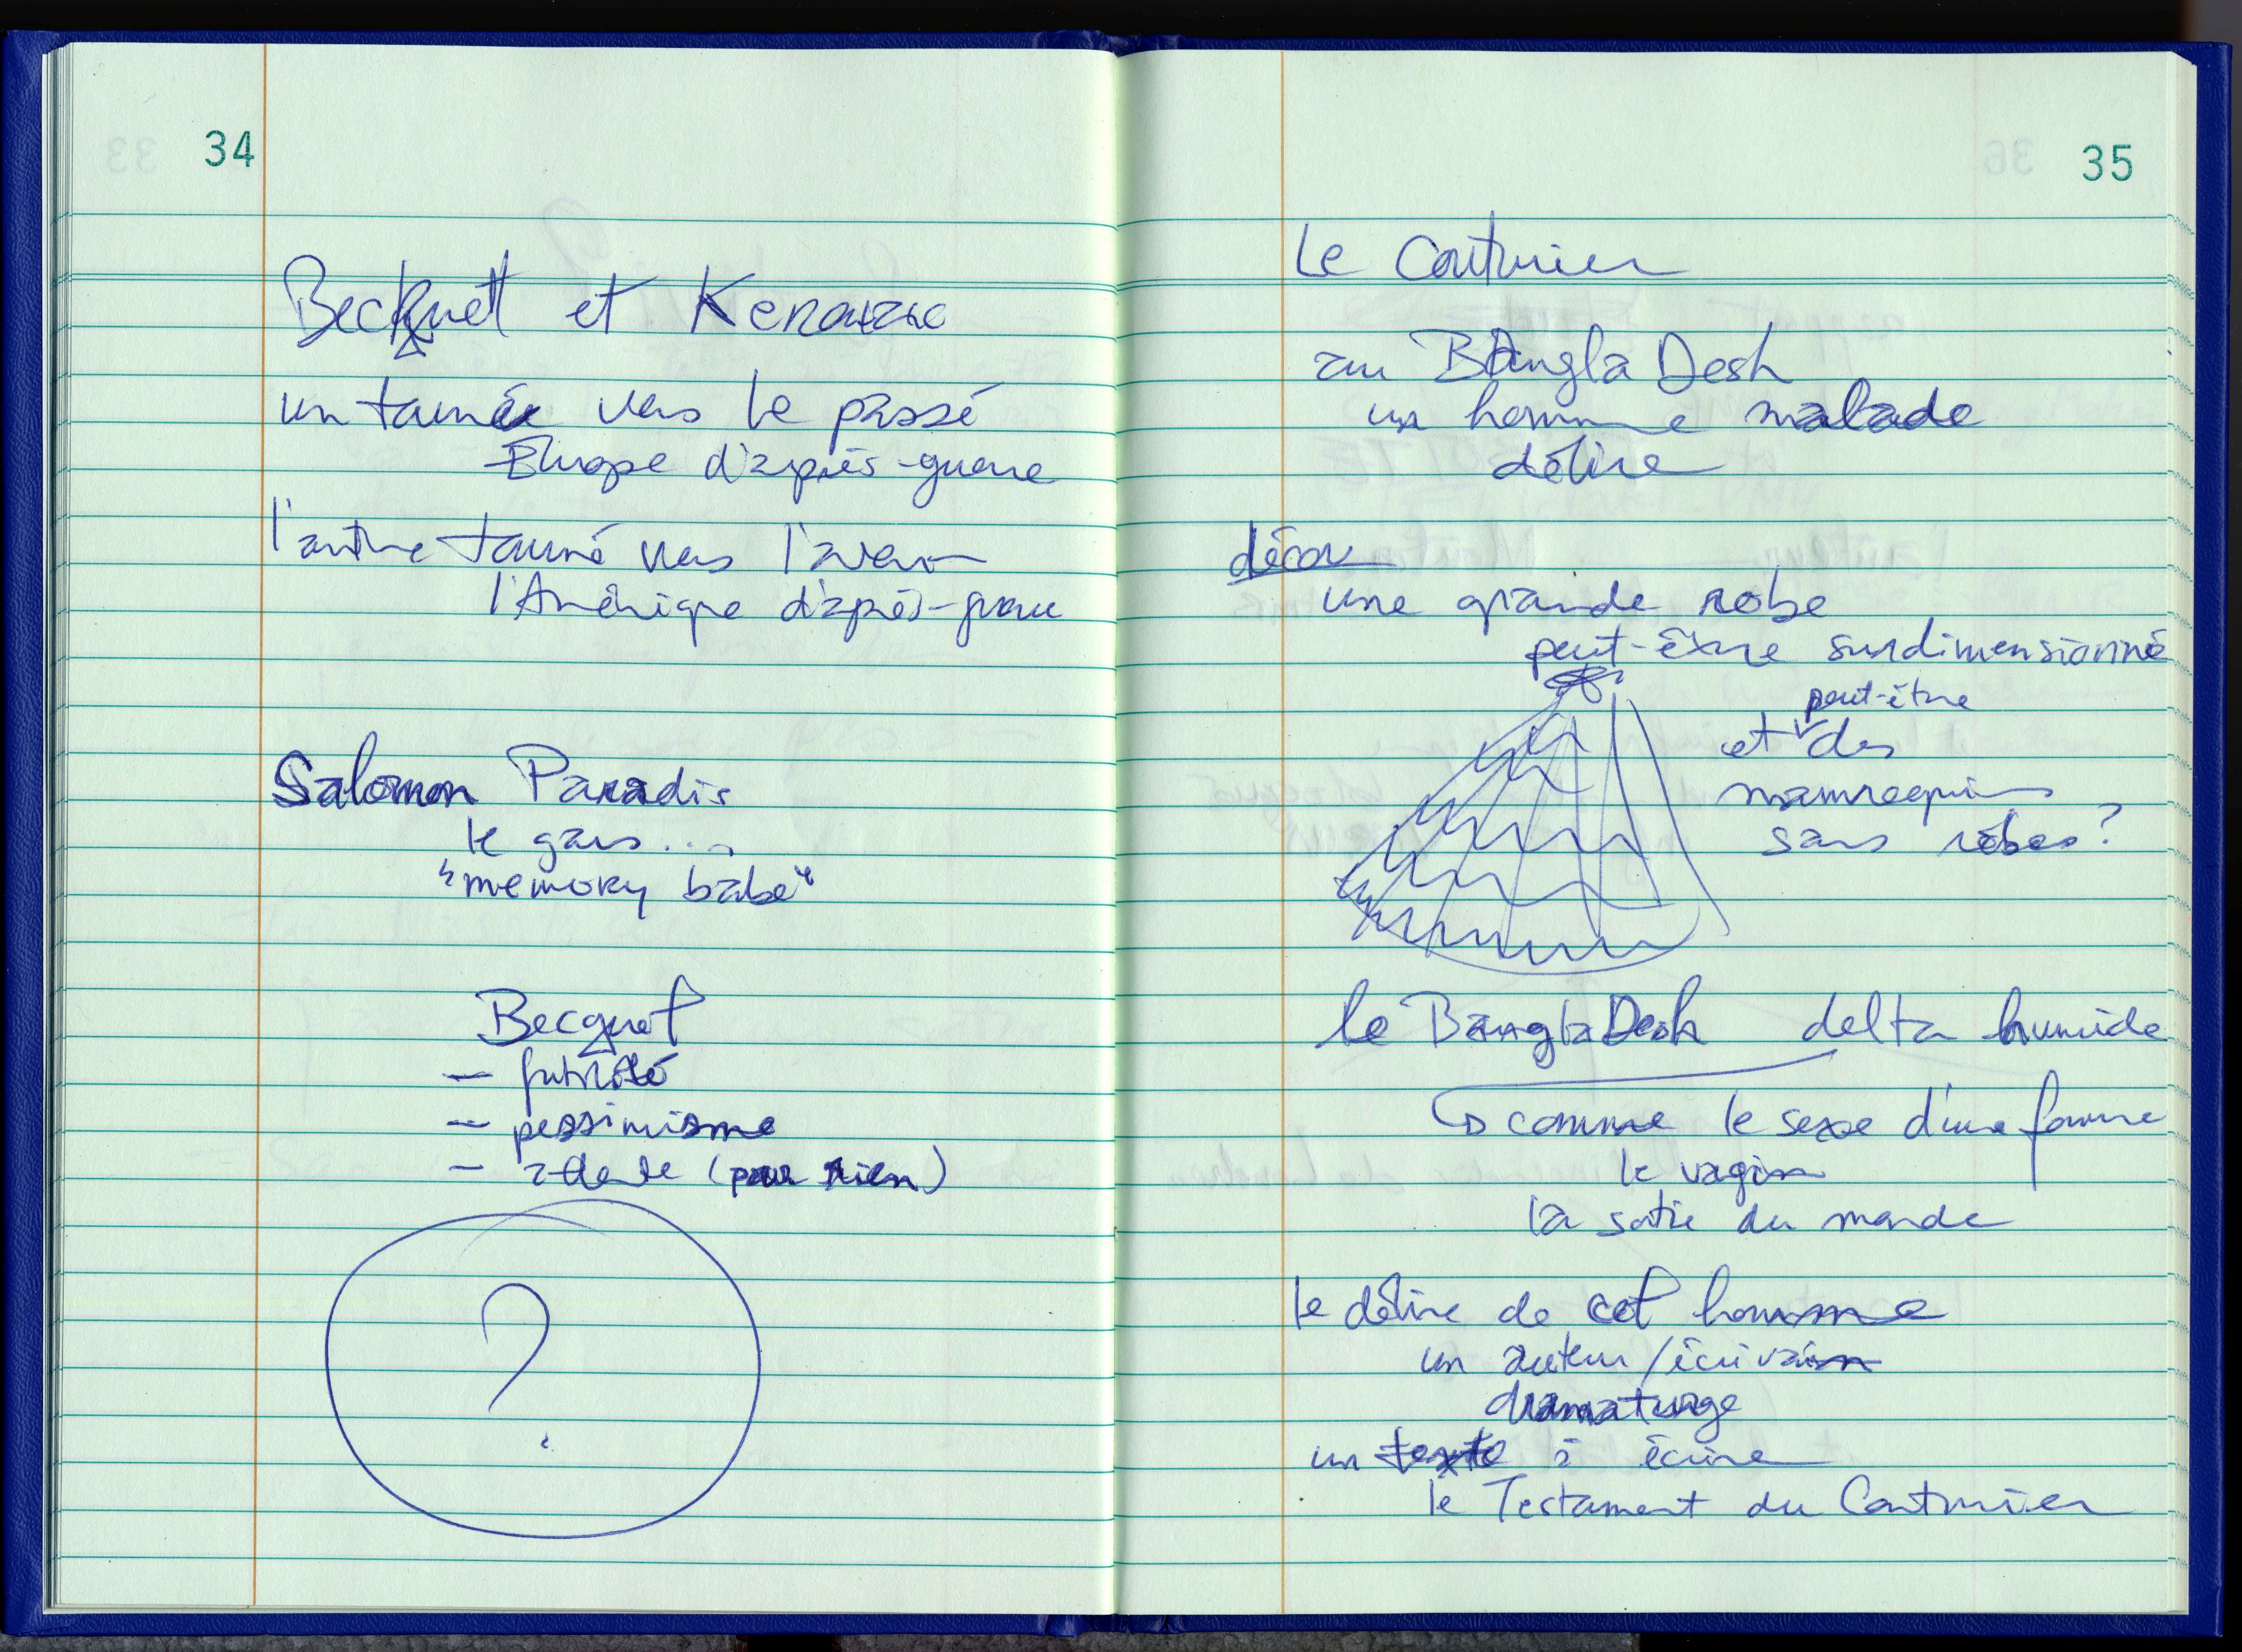 34
Becquet et Kerouac
un tourné vers le passé
Europe d'après-guerre
l'autre tourné vers l'avenir
l'Amérique d'après-guerre
Salomon Paradis
le gars...
"memory babe"
Becquet
- futilité
- pessimisme
- attente (pour rien)
?
35
Le Couturier
au BAngla Desh
un homme malade
délire
décor
une grande robe
peut-être surdimensionné
peut-être
et des
mannequins
sans robes?
le Bangla Desh delta humide
comme le sexe d'une femme
le vagin
la sortie du monde
le délire de cet homme
un auteur/écrivain
dramaturge
un texte à écrire
le Testament du Couturier